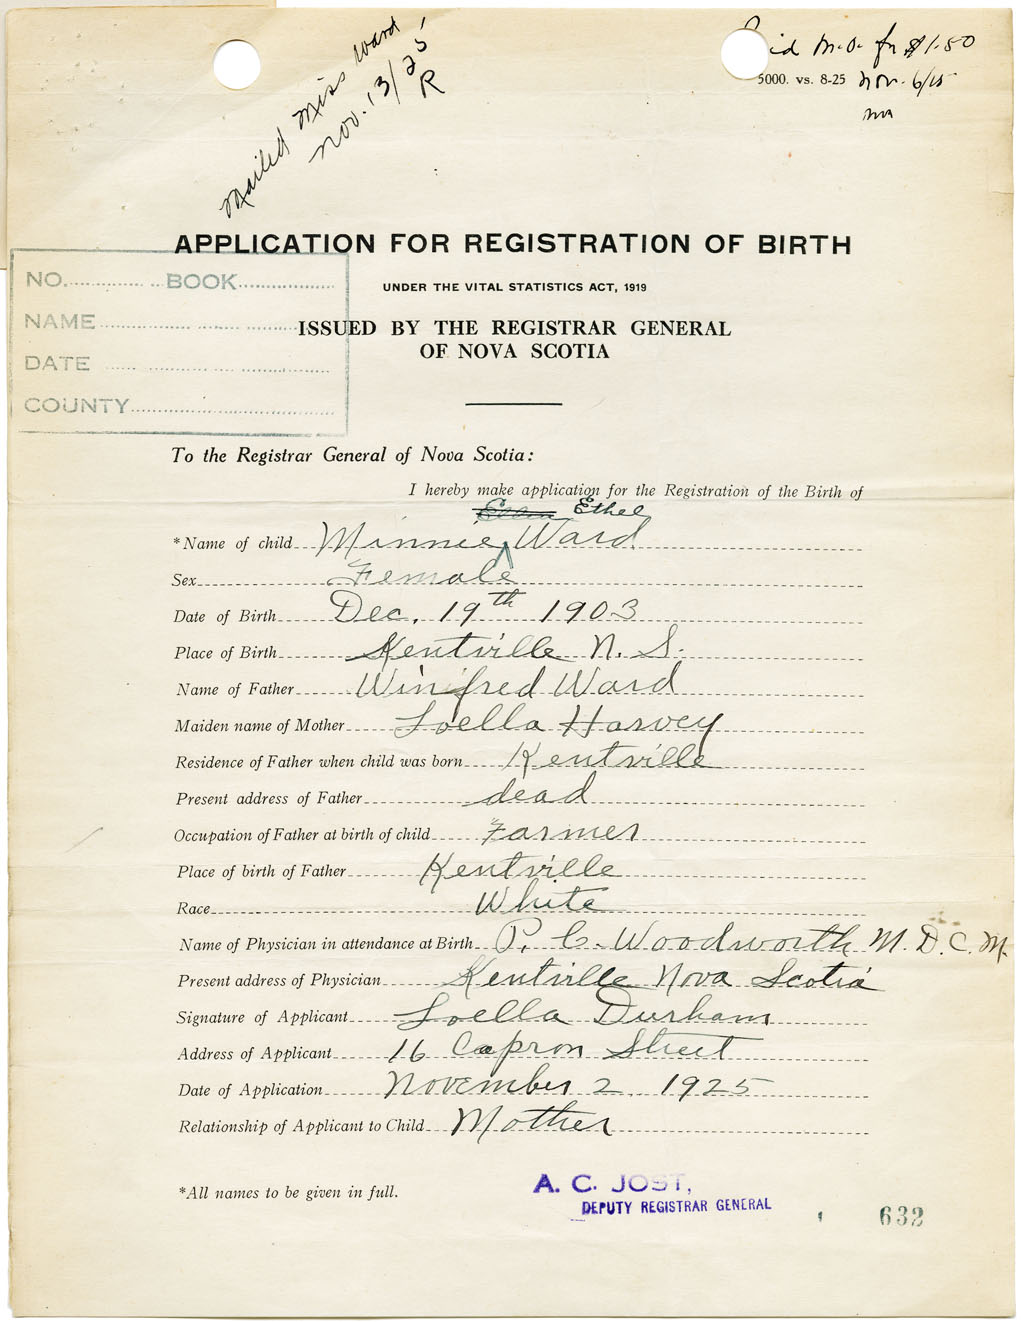 Mailed Miss Ward
Nov. 13/25
R
Paid M.O. for $1.50
5000. vs. 8-25 Nov. 6/25
APPLICATION FOR REGISTRATION OF BIRTH
UNDER THE VITAL STATISTICS ACT, 1919
ISSUED BY THE REGISTRAR GENERAL
OF NOVA SCOTIA
NO. BOOK
NAME
DATE
COUNTY
To the Registrar General of Nova Scotia:
I hereby make application for the Registration of the Birth of
Ethel
*Name of child Minnie Ward
Sex Female
Date of Birth Dec. 19th 1903
Place of Birth Kentville N. S.
Name of Father Winifred Ward
Maiden name of Mother Loella Harvey
Residence of Father when child was born Kentville
Present address of Father dead
Occupation of Father at birth of child Farmer
Place of birth of Father Kentville
Race White
Name of Physician in attendance at Birth P. C. Woodworth M.D.C.M.
Present address of Physician Kentville Nova Scotia
Signature of Applicant Loella Durham
Address of Applicant 16 Capron Street
Date of Application November 2, 1925
Relationship of Applicant to Child Mother
*All names to be given in full.
A. C. JOST,
DEPUTY REGISTRAR GENERAL
632